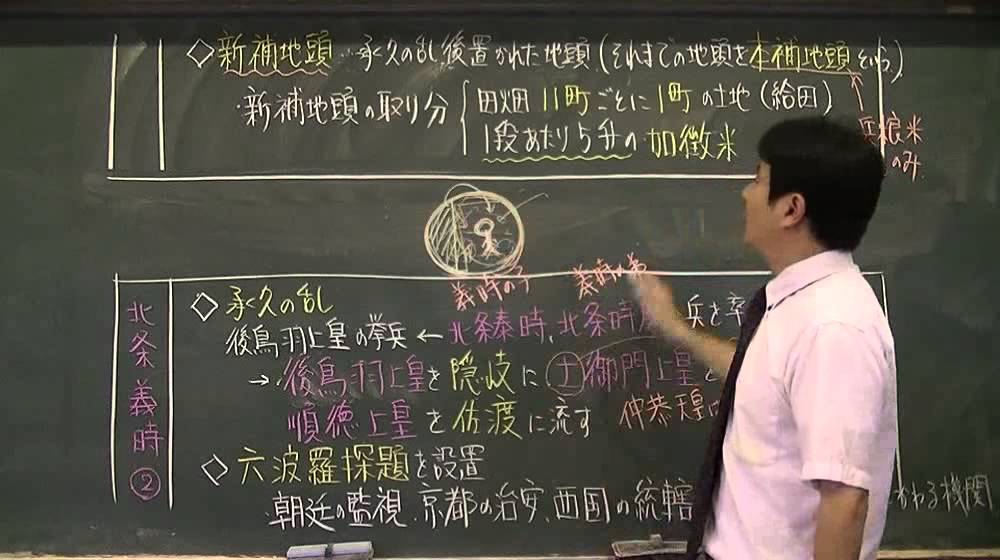 ◇新補地頭…承久の乱後置かれた地頭(それまでの地頭を本補地頭という)
・新補地頭の取り分
田畑11町ごとに1町の土地(給田)
1段あたり5升の加徴米
兵粮米
のみ
北条義時②
◇承久の乱
義時の子 義時の弟
後鳥羽上皇の挙兵←北条泰時、北条時 兵を率
→後鳥羽上皇を隠岐に 土御門上皇を
順徳上皇を佐渡に流す 仲恭天皇
◇六波羅探題を設置
・朝廷の監視、京都の治安、西国の統轄 かわる機関